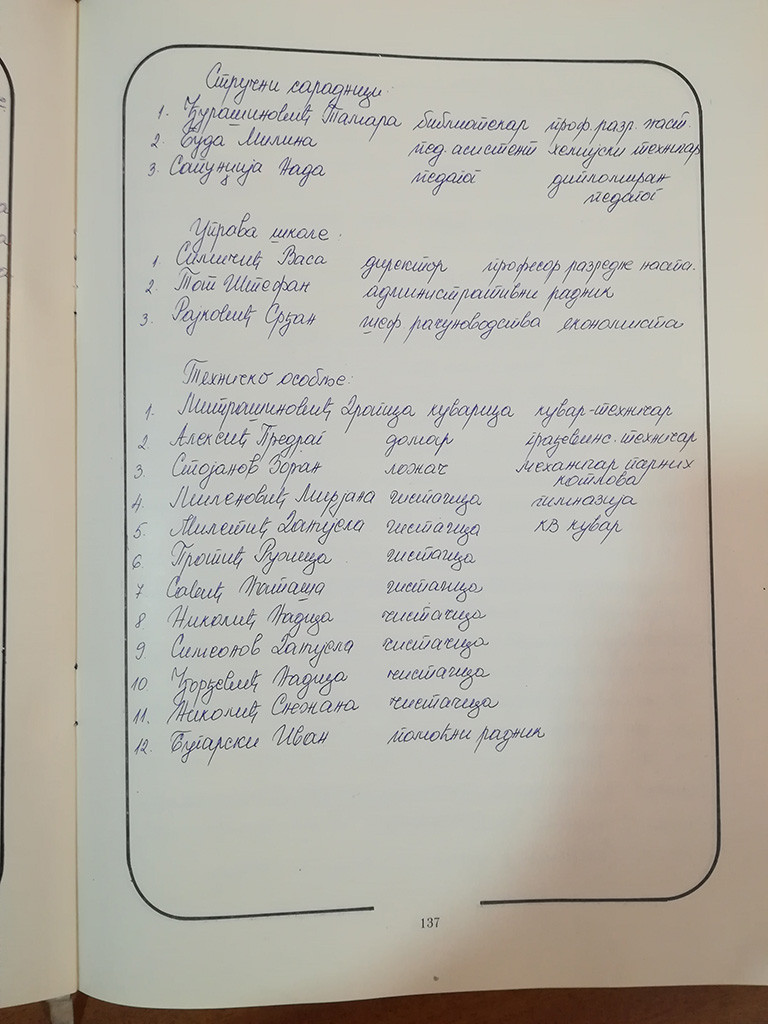 Стручни сарадници:
1. Ђурашиновић Тамара библиотекар проф. разр. наст.
2. Буда Милина пед. асистент хемијски техничар
3. Сапунџија Нада педагог дипломиран
педагог
Управа школе:
1. Симичић Васа директор професор разредне наста.
2. Тот Штефан административни радник
3. Рајковић Срђан шеф рачуноводства економиста
Техничко особље:
1. Митрашиновић Драгица куварица кувар-техничар
2. Алексић Предраг домар грађевинс. техничар
3. Стојанов Зоран ложач механичар парних
котлова
4. Миленовић Мирјана чистачица гимназија
5. Милетић Данијела чистачица КВ кувар
6. Протић Ружица чистачица
7 Савић Наташа чистачица
8 Николић Надица чистачица
9. Симеонов Данијела чистачица
10 Ђорђевић Надица чистачица
11. Николић Снежана чистачица
12. Бугарски Иван помоћни радник
137